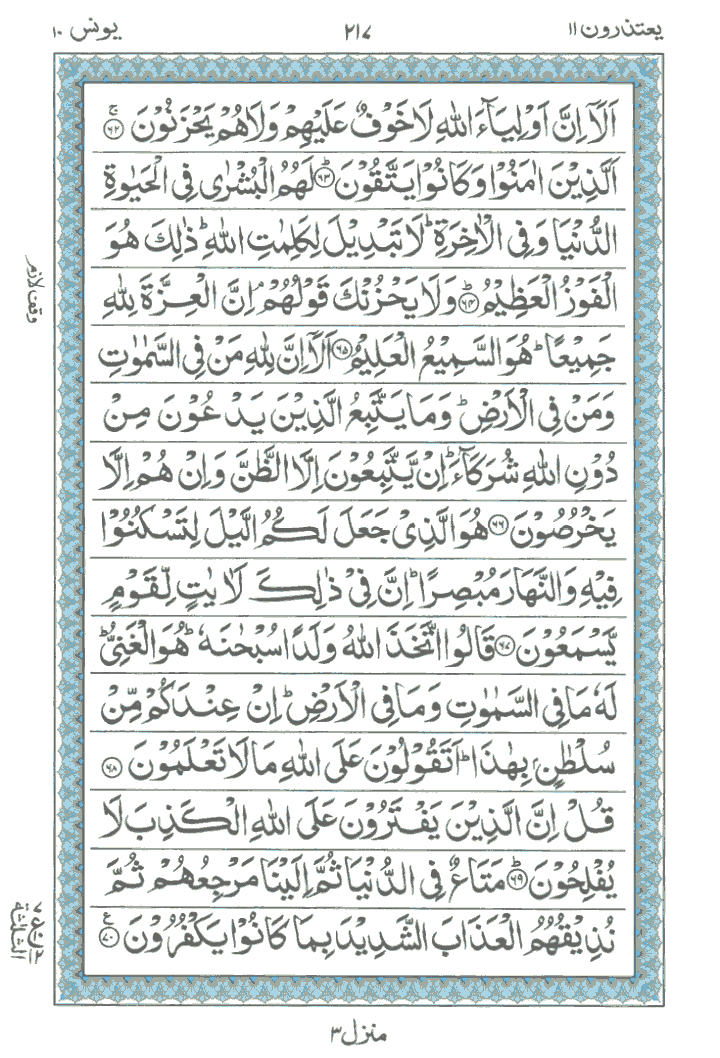 یعتذرون ۱۱ ۲۱۷ یونس ۱۰
اَلَاۤ اِنَّ اَوْلِيَآءَ اللّٰهِ لَا خَوْفٌ عَلَيْهِمْ وَلَا هُمْ يَحْزَنُوْنَ ۚ﴿۶۲﴾
الَّذِيْنَ اٰمَنُوْا وَكَانُوْا يَتَّقُوْنَ ؕ﴿۶۳﴾ لَهُمُ الْبُشْرٰى فِى الْحَيٰوةِ
الدُّنْيَا وَفِى الْاٰخِرَةِ ؕ لَا تَبْدِيْلَ لِكَلِمٰتِ اللّٰهِ ؕ ذٰلِكَ هُوَ
الْفَوْزُ الْعَظِيْمُ ؕ﴿۶۴﴾ وَلَا يَحْزُنْكَ قَوْلُهُمْ ۘ اِنَّ الْعِزَّةَ لِلّٰهِ
جَمِيْعًا ؕ هُوَ السَّمِيْعُ الْعَلِيْمُ ﴿۶۵﴾ اَلَاۤ اِنَّ لِلّٰهِ مَنْ فِى السَّمٰوٰتِ
وَمَنْ فِى الْاَرْضِ ؕ وَمَا يَتَّبِعُ الَّذِيْنَ يَدْعُوْنَ مِنْ
دُوْنِ اللّٰهِ شُرَكَآءَ ؕ اِنْ يَّتَّبِعُوْنَ اِلَّا الظَّنَّ وَاِنْ هُمْ اِلَّا
يَخْرُصُوْنَ ﴿۶۶﴾ هُوَ الَّذِىْ جَعَلَ لَكُمُ الَّيْلَ لِتَسْكُنُوْا
فِيْهِ وَالنَّهَارَ مُبْصِرًا ؕ اِنَّ فِىْ ذٰلِكَ لَاٰيٰتٍ لِّقَوْمٍ
يَّسْمَعُوْنَ ﴿۶۷﴾ قَالُوا اتَّخَذَ اللّٰهُ وَلَدًا سُبْحٰنَهٗ ؕ هُوَ الْغَنِىُّ ؕ
لَهٗ مَا فِى السَّمٰوٰتِ وَمَا فِى الْاَرْضِ ؕ اِنْ عِنْدَكُمْ مِّنْ
سُلْطٰنٍۭ بِهٰذَا ؕ اَتَقُوْلُوْنَ عَلَى اللّٰهِ مَا لَا تَعْلَمُوْنَ ﴿۶۸﴾
قُلْ اِنَّ الَّذِيْنَ يَفْتَرُوْنَ عَلَى اللّٰهِ الْكَذِبَ لَا
يُفْلِحُوْنَ ؕ﴿۶۹﴾ مَتَاعٌ فِى الدُّنْيَا ثُمَّ اِلَيْنَا مَرْجِعُهُمْ ثُمَّ
نُذِيْقُهُمُ الْعَذَابَ الشَّدِيْدَ بِمَا كَانُوْا يَكْفُرُوْنَ ﴿۷۰﴾ ع
وقف لازم
الثلثة
منزل ۳